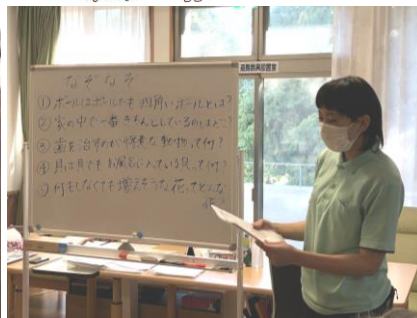 なぞなぞ
避難器具設置室
①ボールはボールでも四角いボールとは?
②家の中で一番きちんとしているのはどこ?
③歯を治すのが得意な動物って何?
④貝は貝でもお風呂に入っている貝って何?
⑤何もしなくても増えそうな花ってどんな
花?